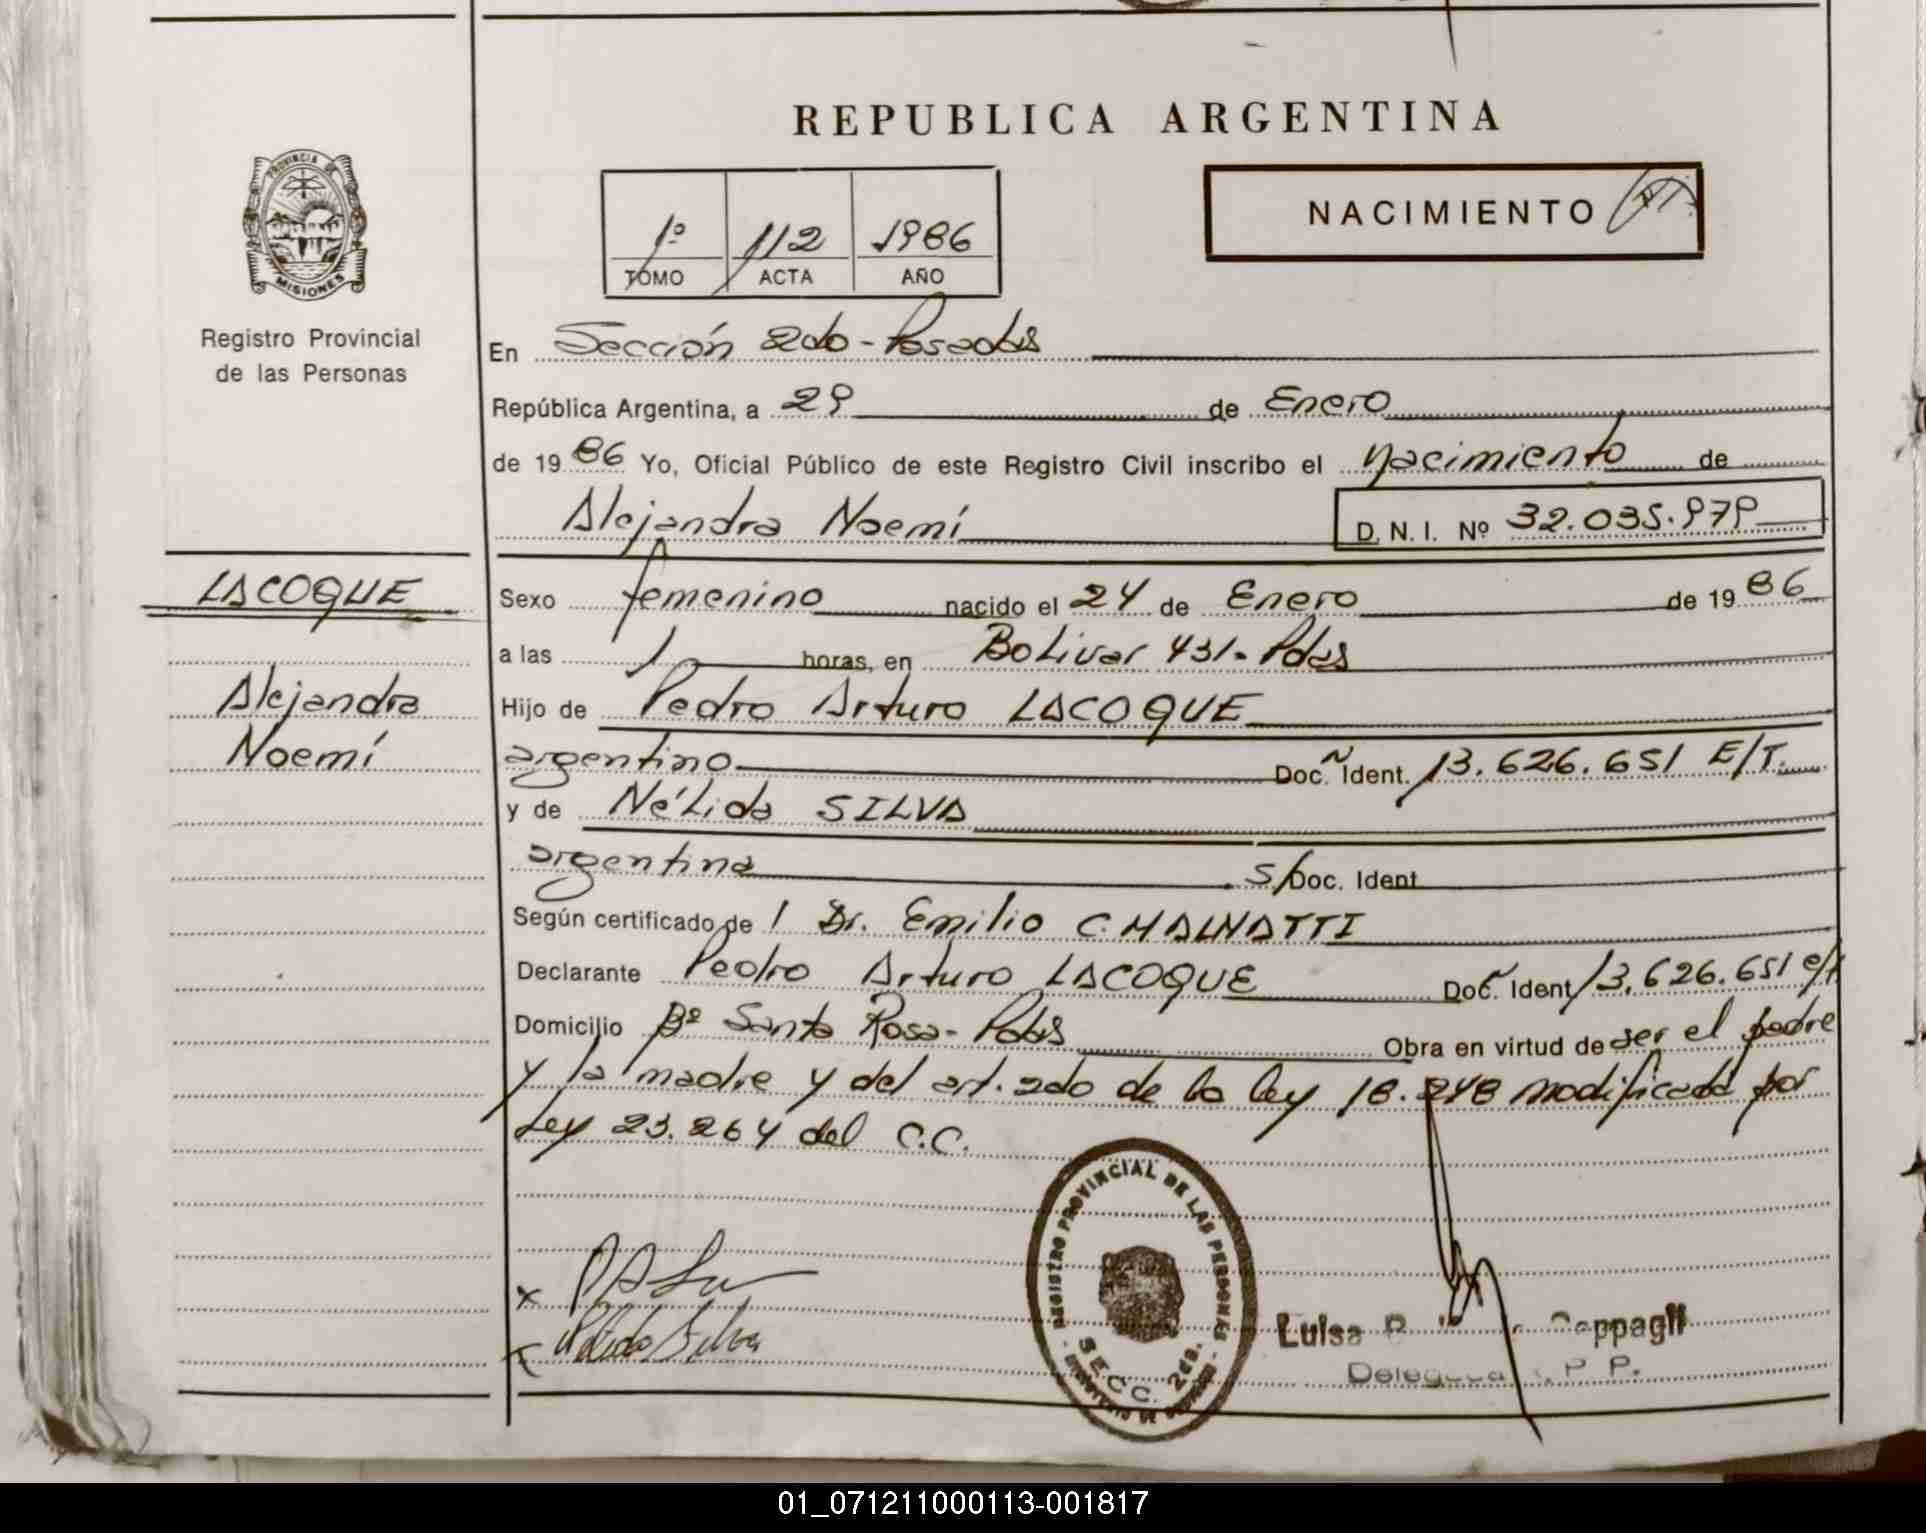 REPUBLICA ARGENTINA
PROVINCIA DE
MISIONES
Registro Provincial
de las Personas
1º 112 1986
TOMO ACTA AÑO
NACIMIENTO
En Sección 2do - Posadas
República Argentina, a 29 de Enero
de 1986 Yo, Oficial Público de este Registro Civil inscribo el Nacimiento de
Alejandra Noemí D. N. I. Nº 32.035.979
LACOQUE
Alejandra
Noemí
Sexo femenino nacido el 24 de Enero de 1986
a las 1 horas, en Bolivar 431 - Pdas
Hijo de Pedro Arturo LACOQUE
argentino Docñ. Ident. 13.626.651 E/T.
y de Nélida SILVA
argentina S/Doc. Ident
Según certificado de 1 Dr. Emilio C. MALNATTI
Declarante Pedro Arturo LACOQUE Doc. Ident 13.626.651 e/t
Domicilio Bº Santa Rosa - Pdas Obra en virtud de ser el padre
y la madre y del art. 2do de la ley 18.248 modificada por
Ley 23.264 del C.C.
REGISTRO PROVINCIAL DE LAS PERSONAS
SECC. 2da.
Nelida Silva
Luisa
Delegada P. P.
01_071211000113-001817